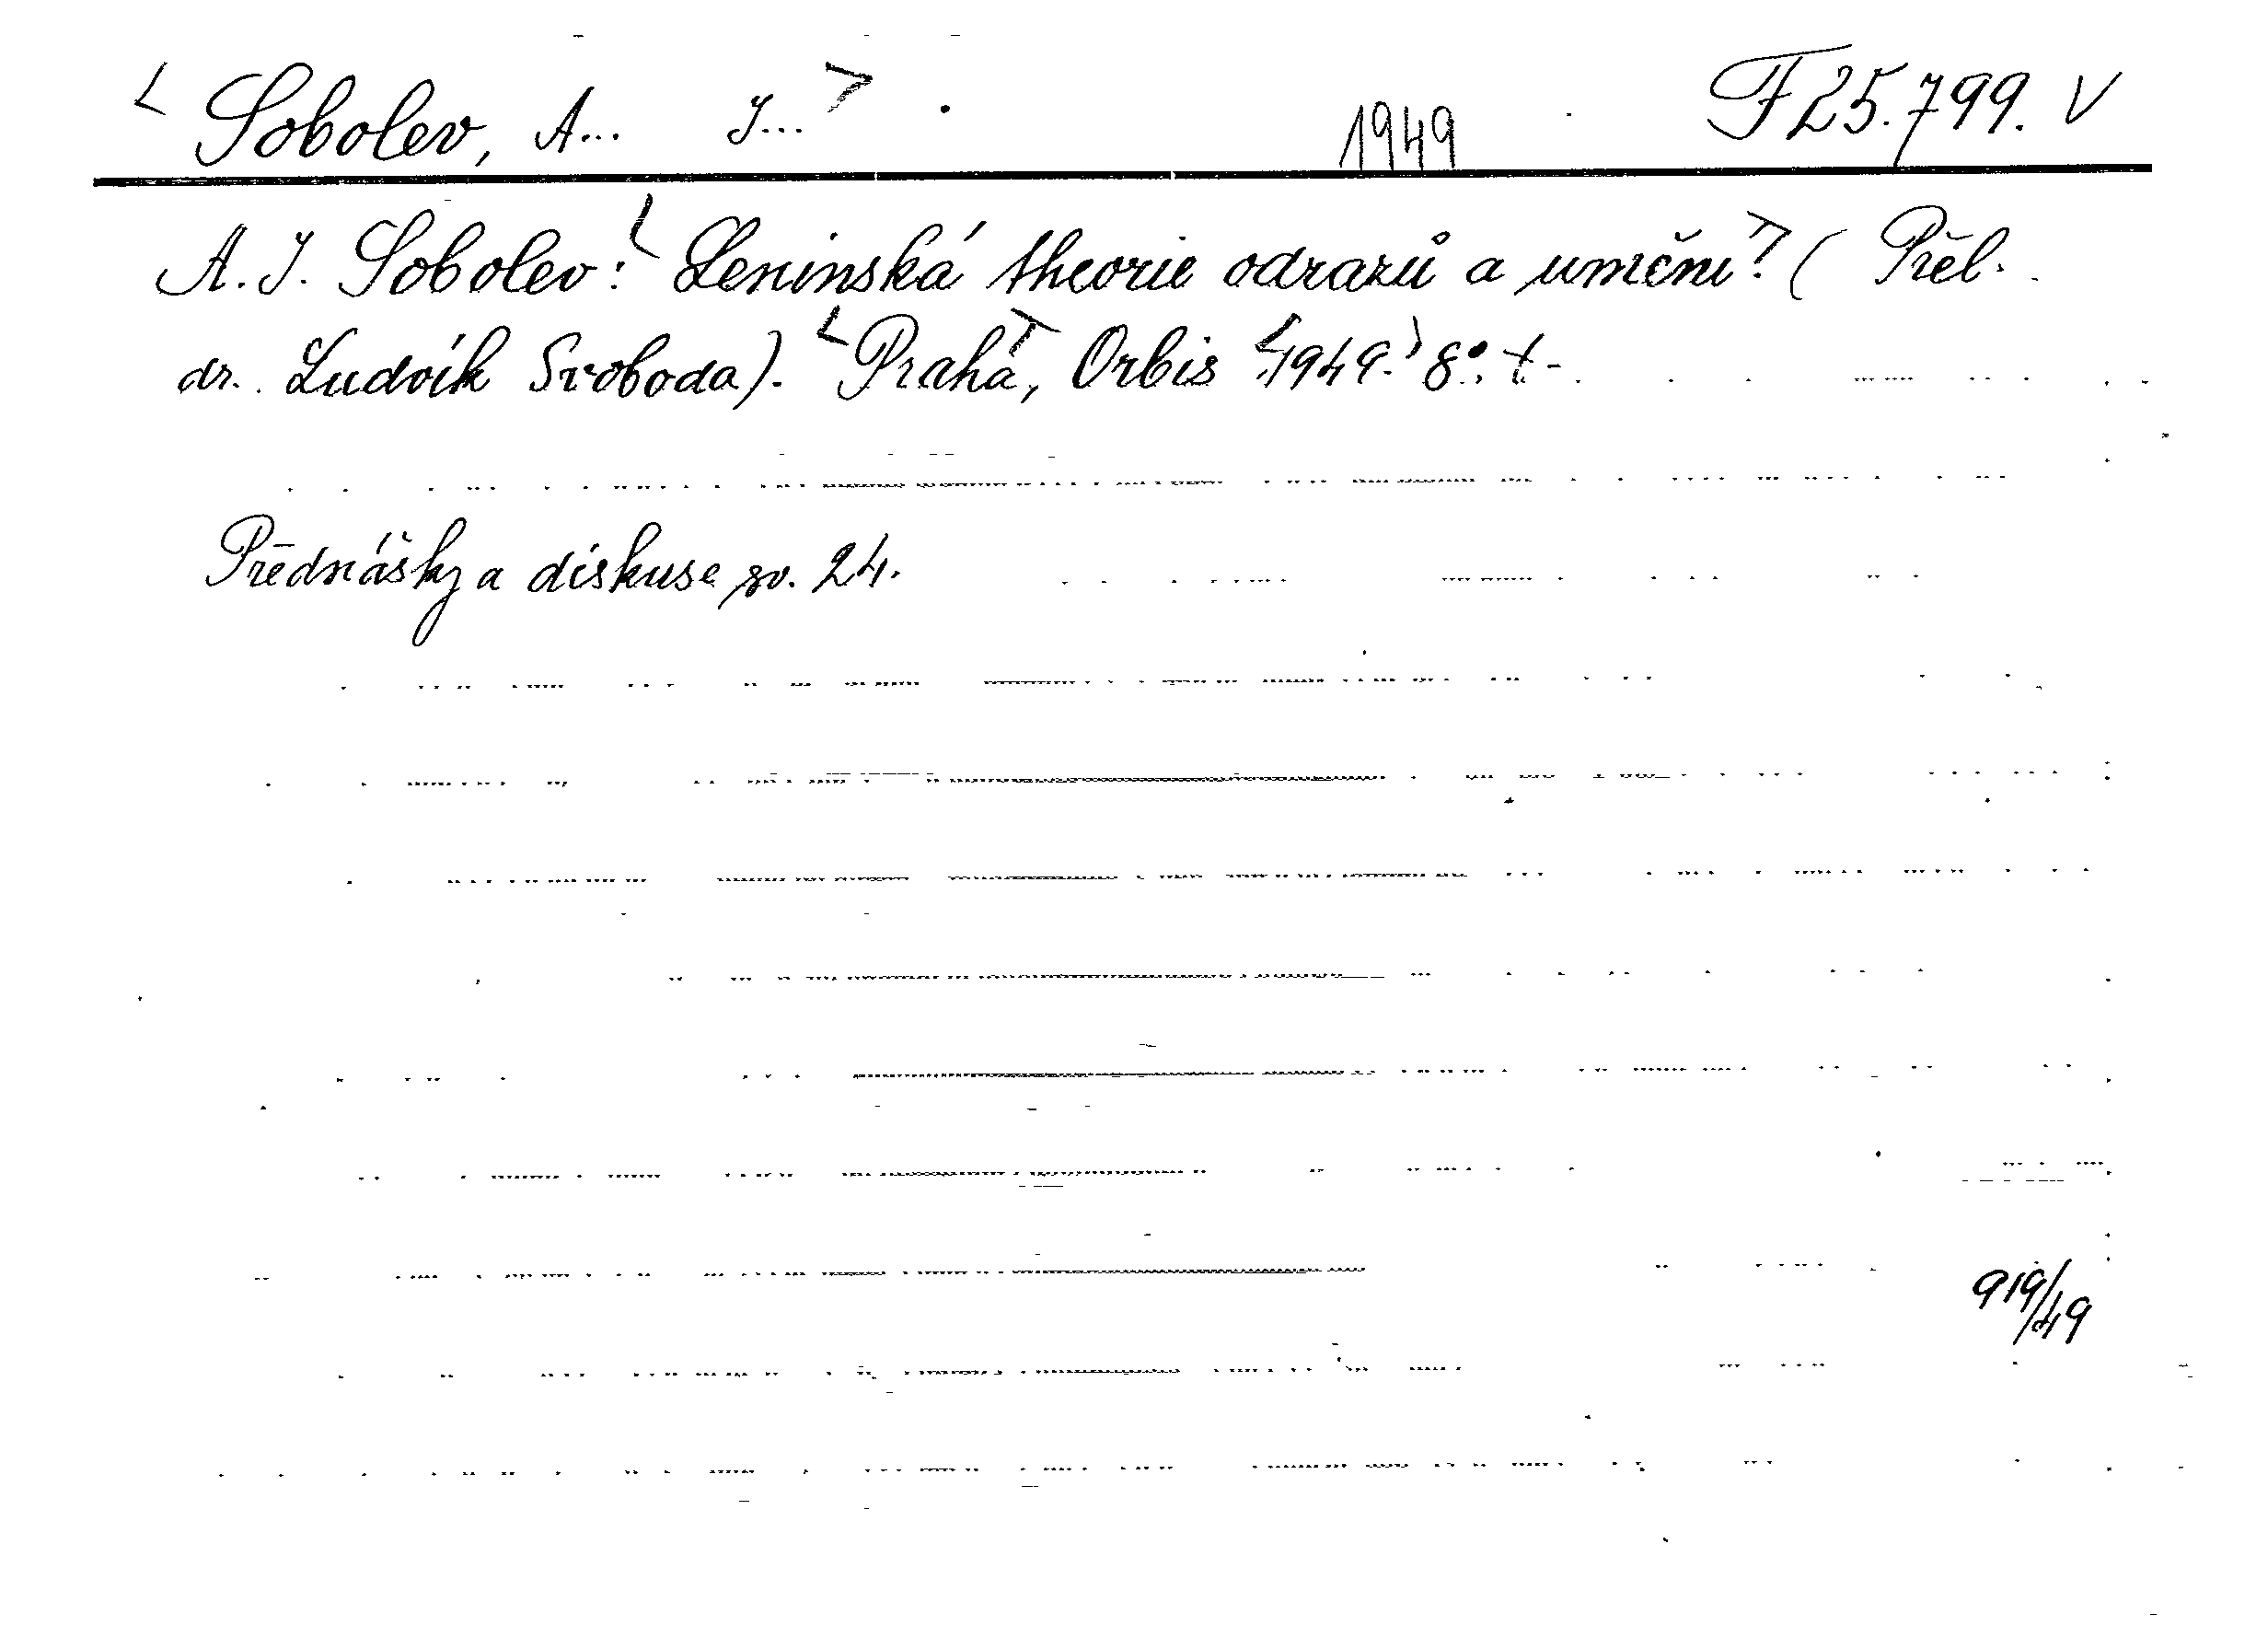 < Sobolev, A... J...> . 1949 F 25.799. V
A. J. Sobolev: <Leninská theorie odrazů a uměni> ( Přel.
dr. Ludvík Svoboda). <Praha>, Orbis <1949.> 8°. t-
Přednášky a diskuse sv. 24.
919/49